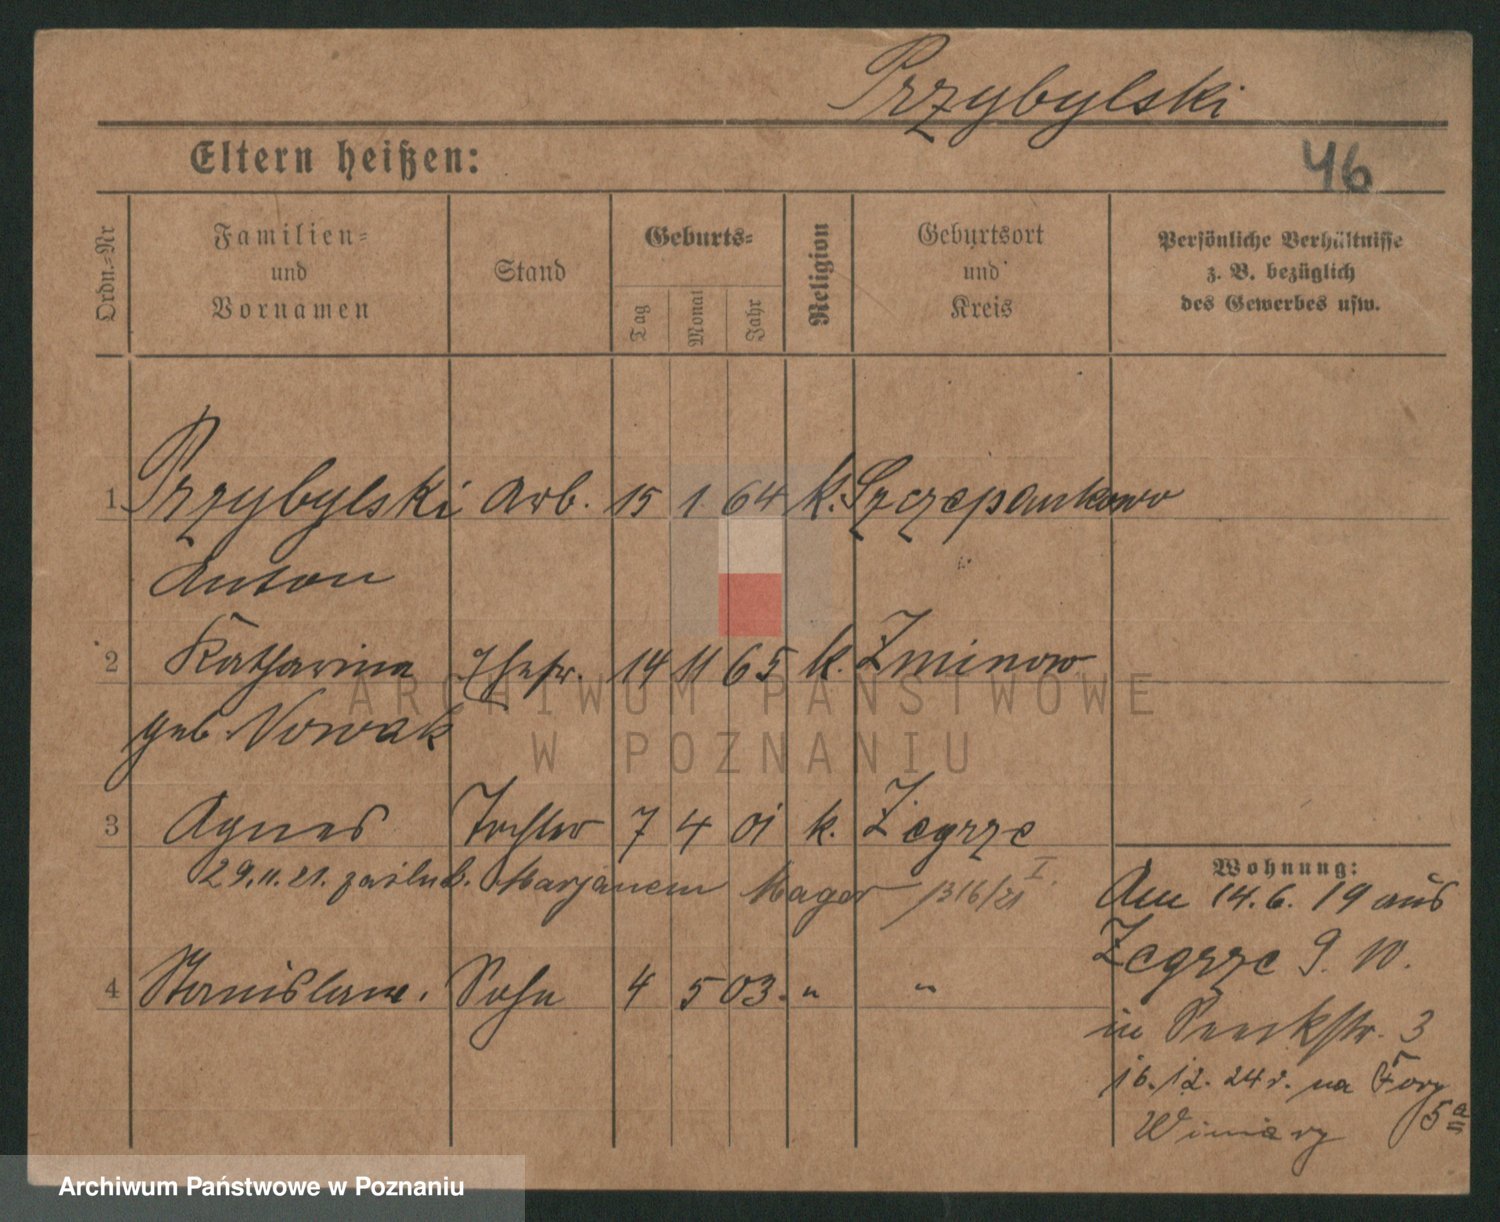 Przybylski
Eltern heißen:
46
Ordn.-Nr
Familien-
und
Vornamen
Stand
Geburts-
Tag
Monat
Jahr
Religion
Geburtsort
und
Kreis
Persönliche Verhältnisse
z. B. bezüglich
des Gewerbes usw.
1 Przybylski Arb. 15 1. 64 k. Szczepankowo
Anton
2 Katharina Ehefr. 14 11 65 k. Zminow
geb. Nowak
3 Agnes Tochter 7 4 01 k. Zegrze
29.11.21. zaślub. Marjanem Mager 1316/21 I.
4 Stanislaus. Sohn 4 5 03. " "
Wohnung:
Am 14.6.19 aus
Zegrze 9. 10.
in 3
16.12.24 r. na
Winiary 5a
ARCHIWUM PAŃSTWOWE
W POZNANIU
Archiwum Państwowe w Poznaniu